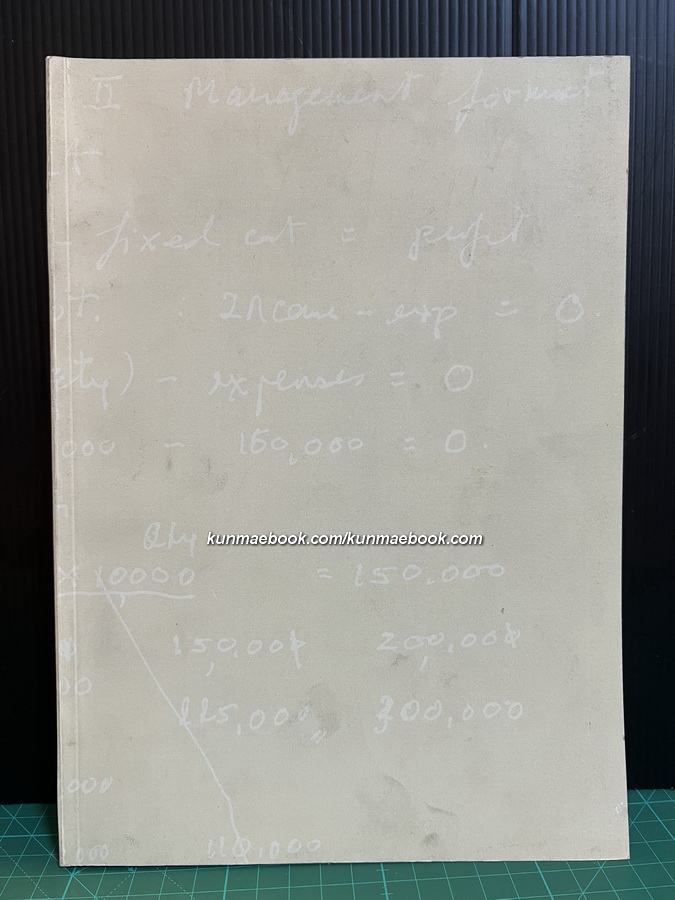 II Management format
- fixed cost = profit
: Income - exp = 0
ety) - expenses = 0
000 - 150,000 = 0.
Qty
kunmaebook.com/kunmaebook.com
x 10000 = 150,000
150,000 200,000
00
225,000 300,000
000
000 110,000